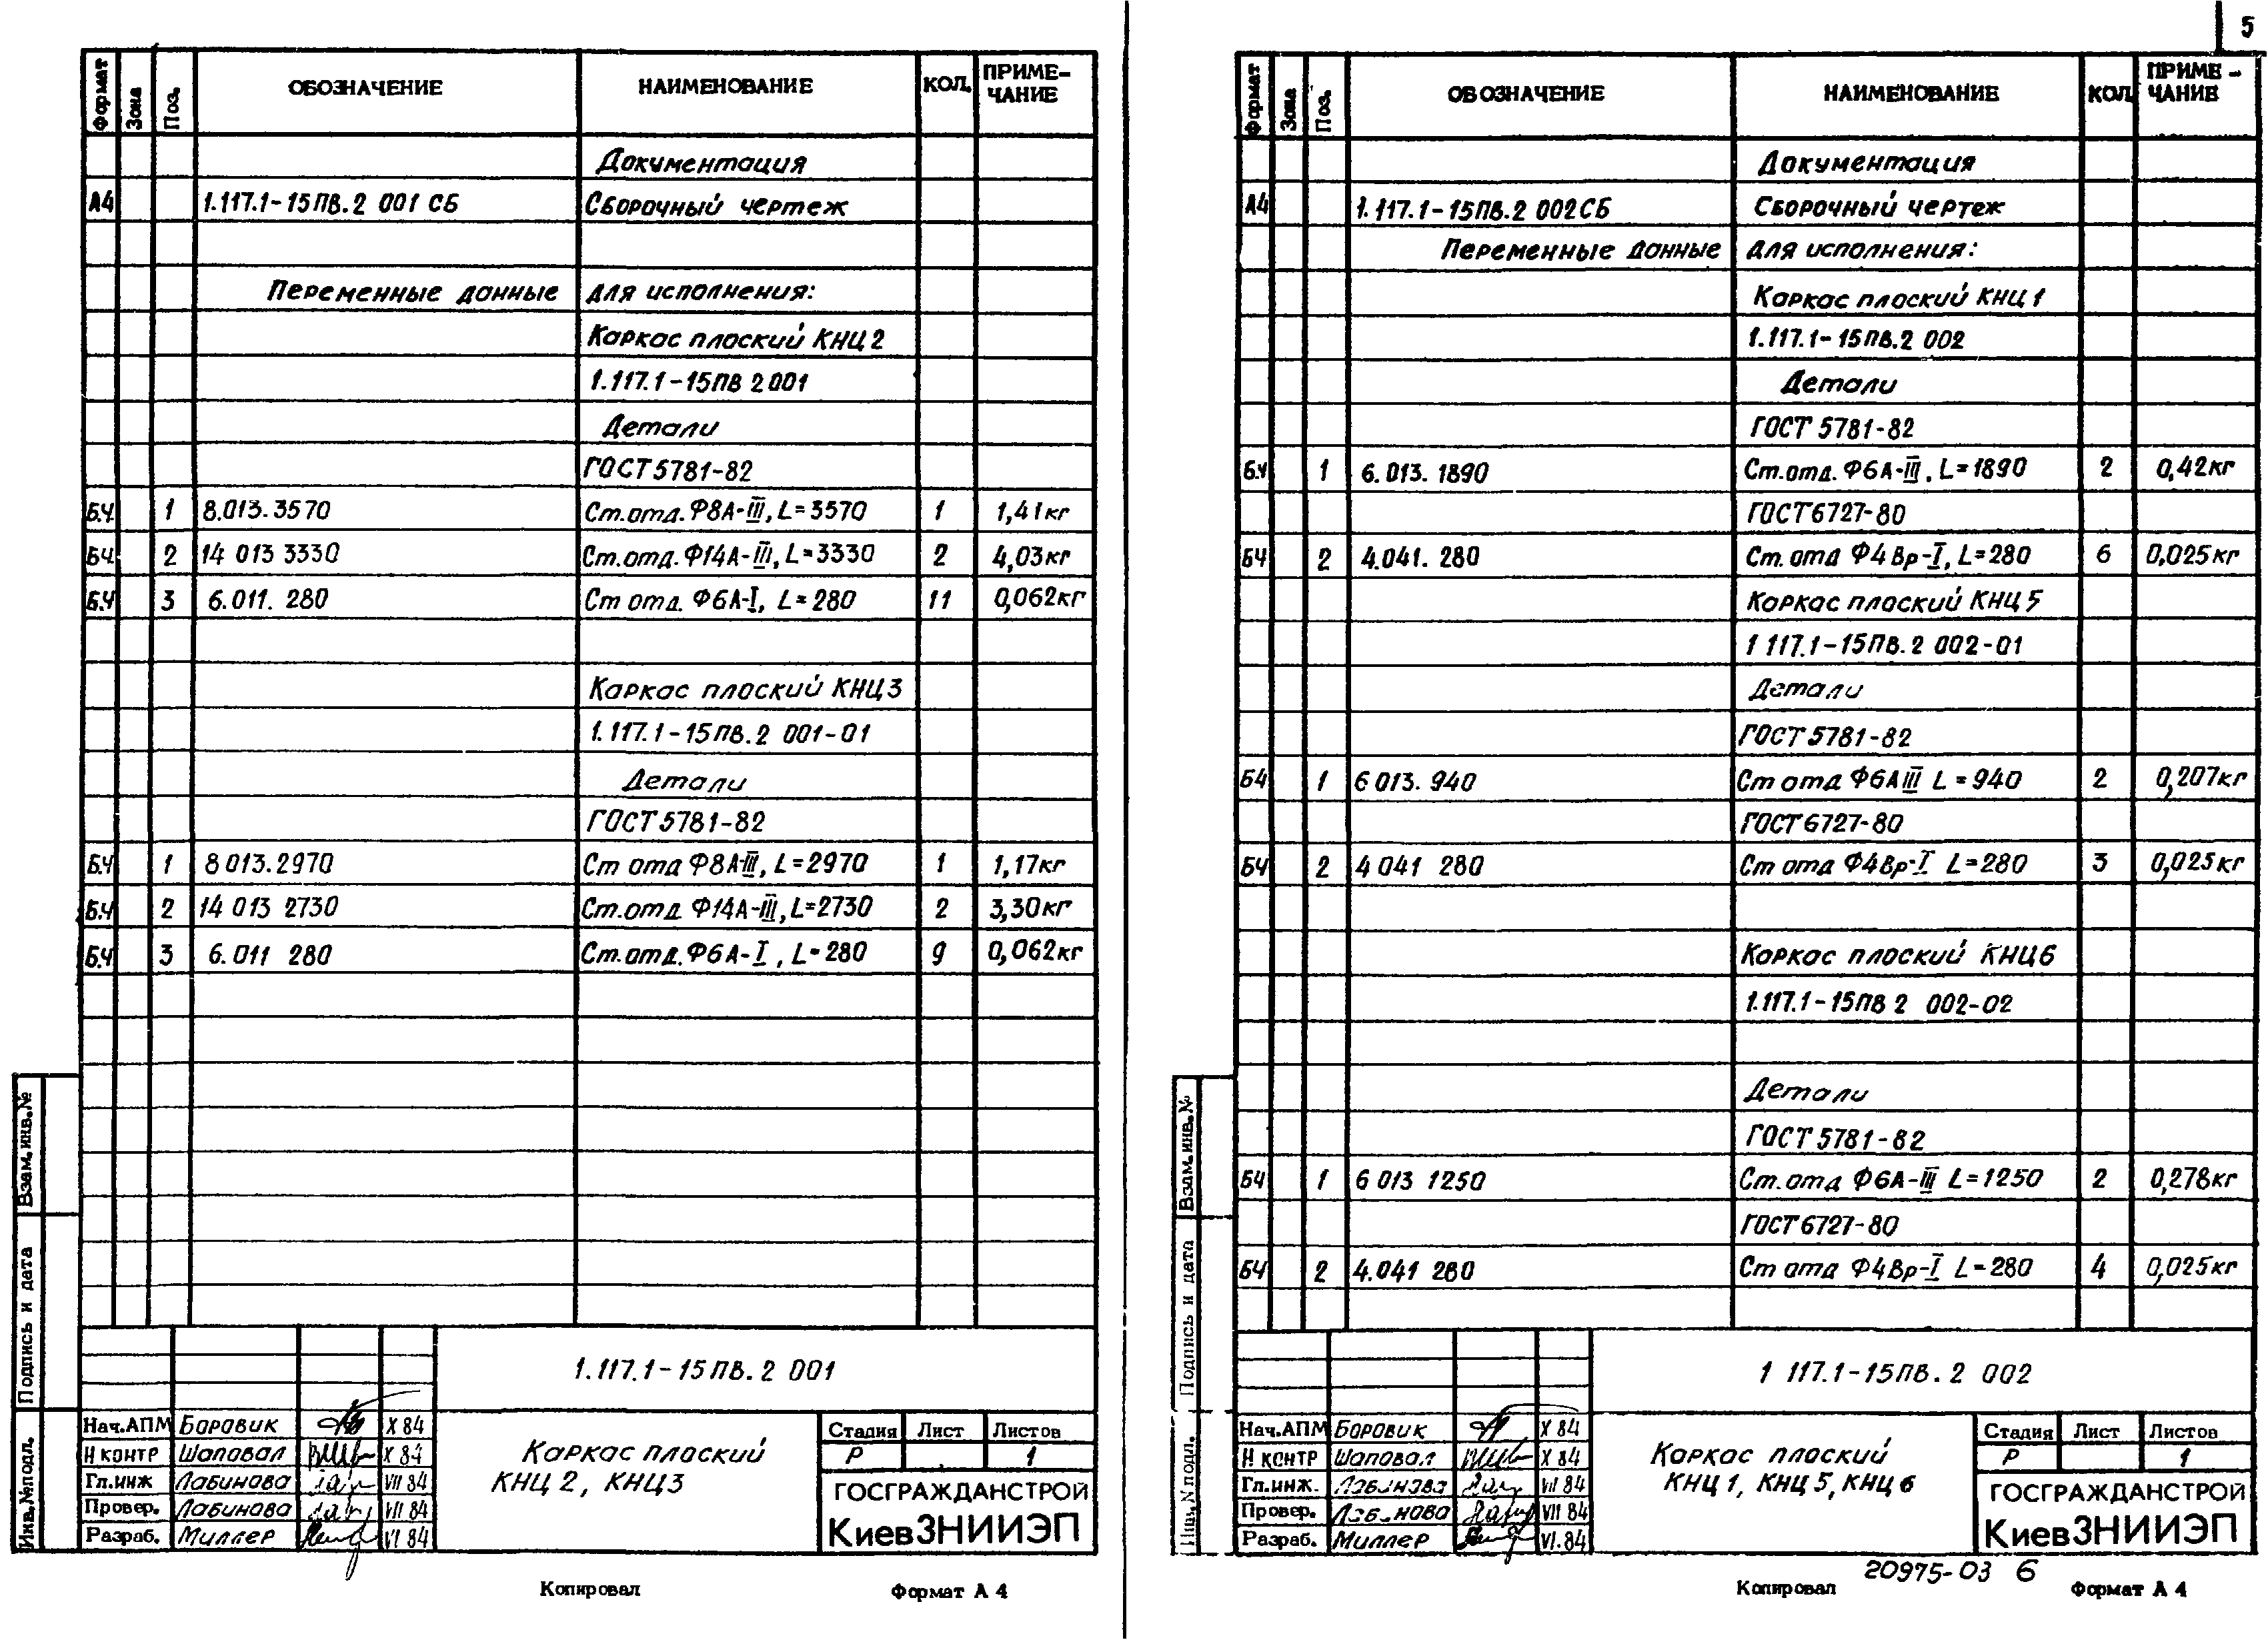 5
Формат Зона Поз. ОБОЗНАЧЕНИЕ НАИМЕНОВАНИЕ КОЛ. ПРИМЕ-
ЧАНИЕ
Документация
А4 1.117.1-15ПВ.2 001 СБ Сборочный чертеж
Переменные данные для исполнения:
Каркас плоский КНЦ 2
1.117.1-15ПВ 2 001
Детали
ГОСТ 5781-82
Б.Ч. 1 8.013.3570 Ст.отд. Ф8А-III, L=3570 1 1,41кг
БЧ. 2 14 013 3330 Ст.отд. Ф14А-III, L=3330 2 4,03кг
Б.Ч 3 6.011. 280 Ст отд. Ф6А-I, L=280 11 0,062кг
Каркас плоский КНЦ3
1.117.1-15ПВ.2 001-01
Детали
ГОСТ 5781-82
Б.Ч 1 8 013.2970 Ст отд Ф8А-III, L=2970 1 1,17кг
Б.Ч 2 14 013 2730 Ст.отд Ф14А-III, L=2730 2 3,30кг
Б.Ч 3 6.011 280 Ст.отд. Ф6А-I, L=280 9 0,062кг
Взам.инв.№
Подпись и дата
Инв.№подл.
1.117.1-15ПВ.2 001
Нач.АПМ Боровик X 84
Н контр Шаповал X 84
Гл.инж Лабинова VII 84
Провер. Лабинова VII 84
Разраб. Миллер VI 84
Каркас плоский
КНЦ 2, КНЦ3
Стадия Лист Листов
Р 1
ГОСГРАЖДАНСТРОЙ
КиевЗНИИЭП
Копировал Формат А 4
Формат Зона Поз. ОБОЗНАЧЕНИЕ НАИМЕНОВАНИЕ КОЛ ПРИМЕ-
ЧАНИЕ
Документация
А4 1.117.1-15ПВ.2 002СБ Сборочный чертеж
Переменные данные для исполнения:
Каркас плоский КНЦ 1
1.117.1-15ПВ.2 002
Детали
ГОСТ 5781-82
Б.Ч 1 6.013.1890 Ст.отд. Ф6А-III, L=1890 2 0,42кг
ГОСТ 6727-80
БЧ 2 4.041. 280 Ст. отд Ф4 Вр-I, L=280 6 0,025кг
Каркас плоский КНЦ 5
1 117.1-15ПВ.2 002-01
Детали
ГОСТ 5781-82
БЧ 1 6 013. 940 Ст отд Ф6АIII L=940 2 0,207кг
ГОСТ 6727-80
БЧ 2 4 041 280 Ст отд Ф4Вр-I L=280 3 0,025кг
Каркас плоский КНЦ6
1.117.1-15ПВ 2 002-02
Детали
ГОСТ 5781-82
БЧ 1 6 013 1250 Ст.отд Ф6А-III L=1250 2 0,278кг
ГОСТ 6727-80
БЧ 2 4.041 280 Ст отд Ф4Вр-I L=280 4 0,025кг
Взам.инв.№
Подпись и дата
Инв.№подл.
1 117.1-15ПВ.2 002
Нач.АПМ Боровик X 84
Н контр Шаповал X 84
Гл.инж. Лабинова VII 84
Провер. Лабинова VII 84
Разраб. Миллер VI.84
Каркас плоский
КНЦ 1, КНЦ 5, КНЦ 6
Стадия Лист Листов
Р 1
ГОСГРАЖДАНСТРОЙ
КиевЗНИИЭП
20975-03 6
Копировал Формат А 4